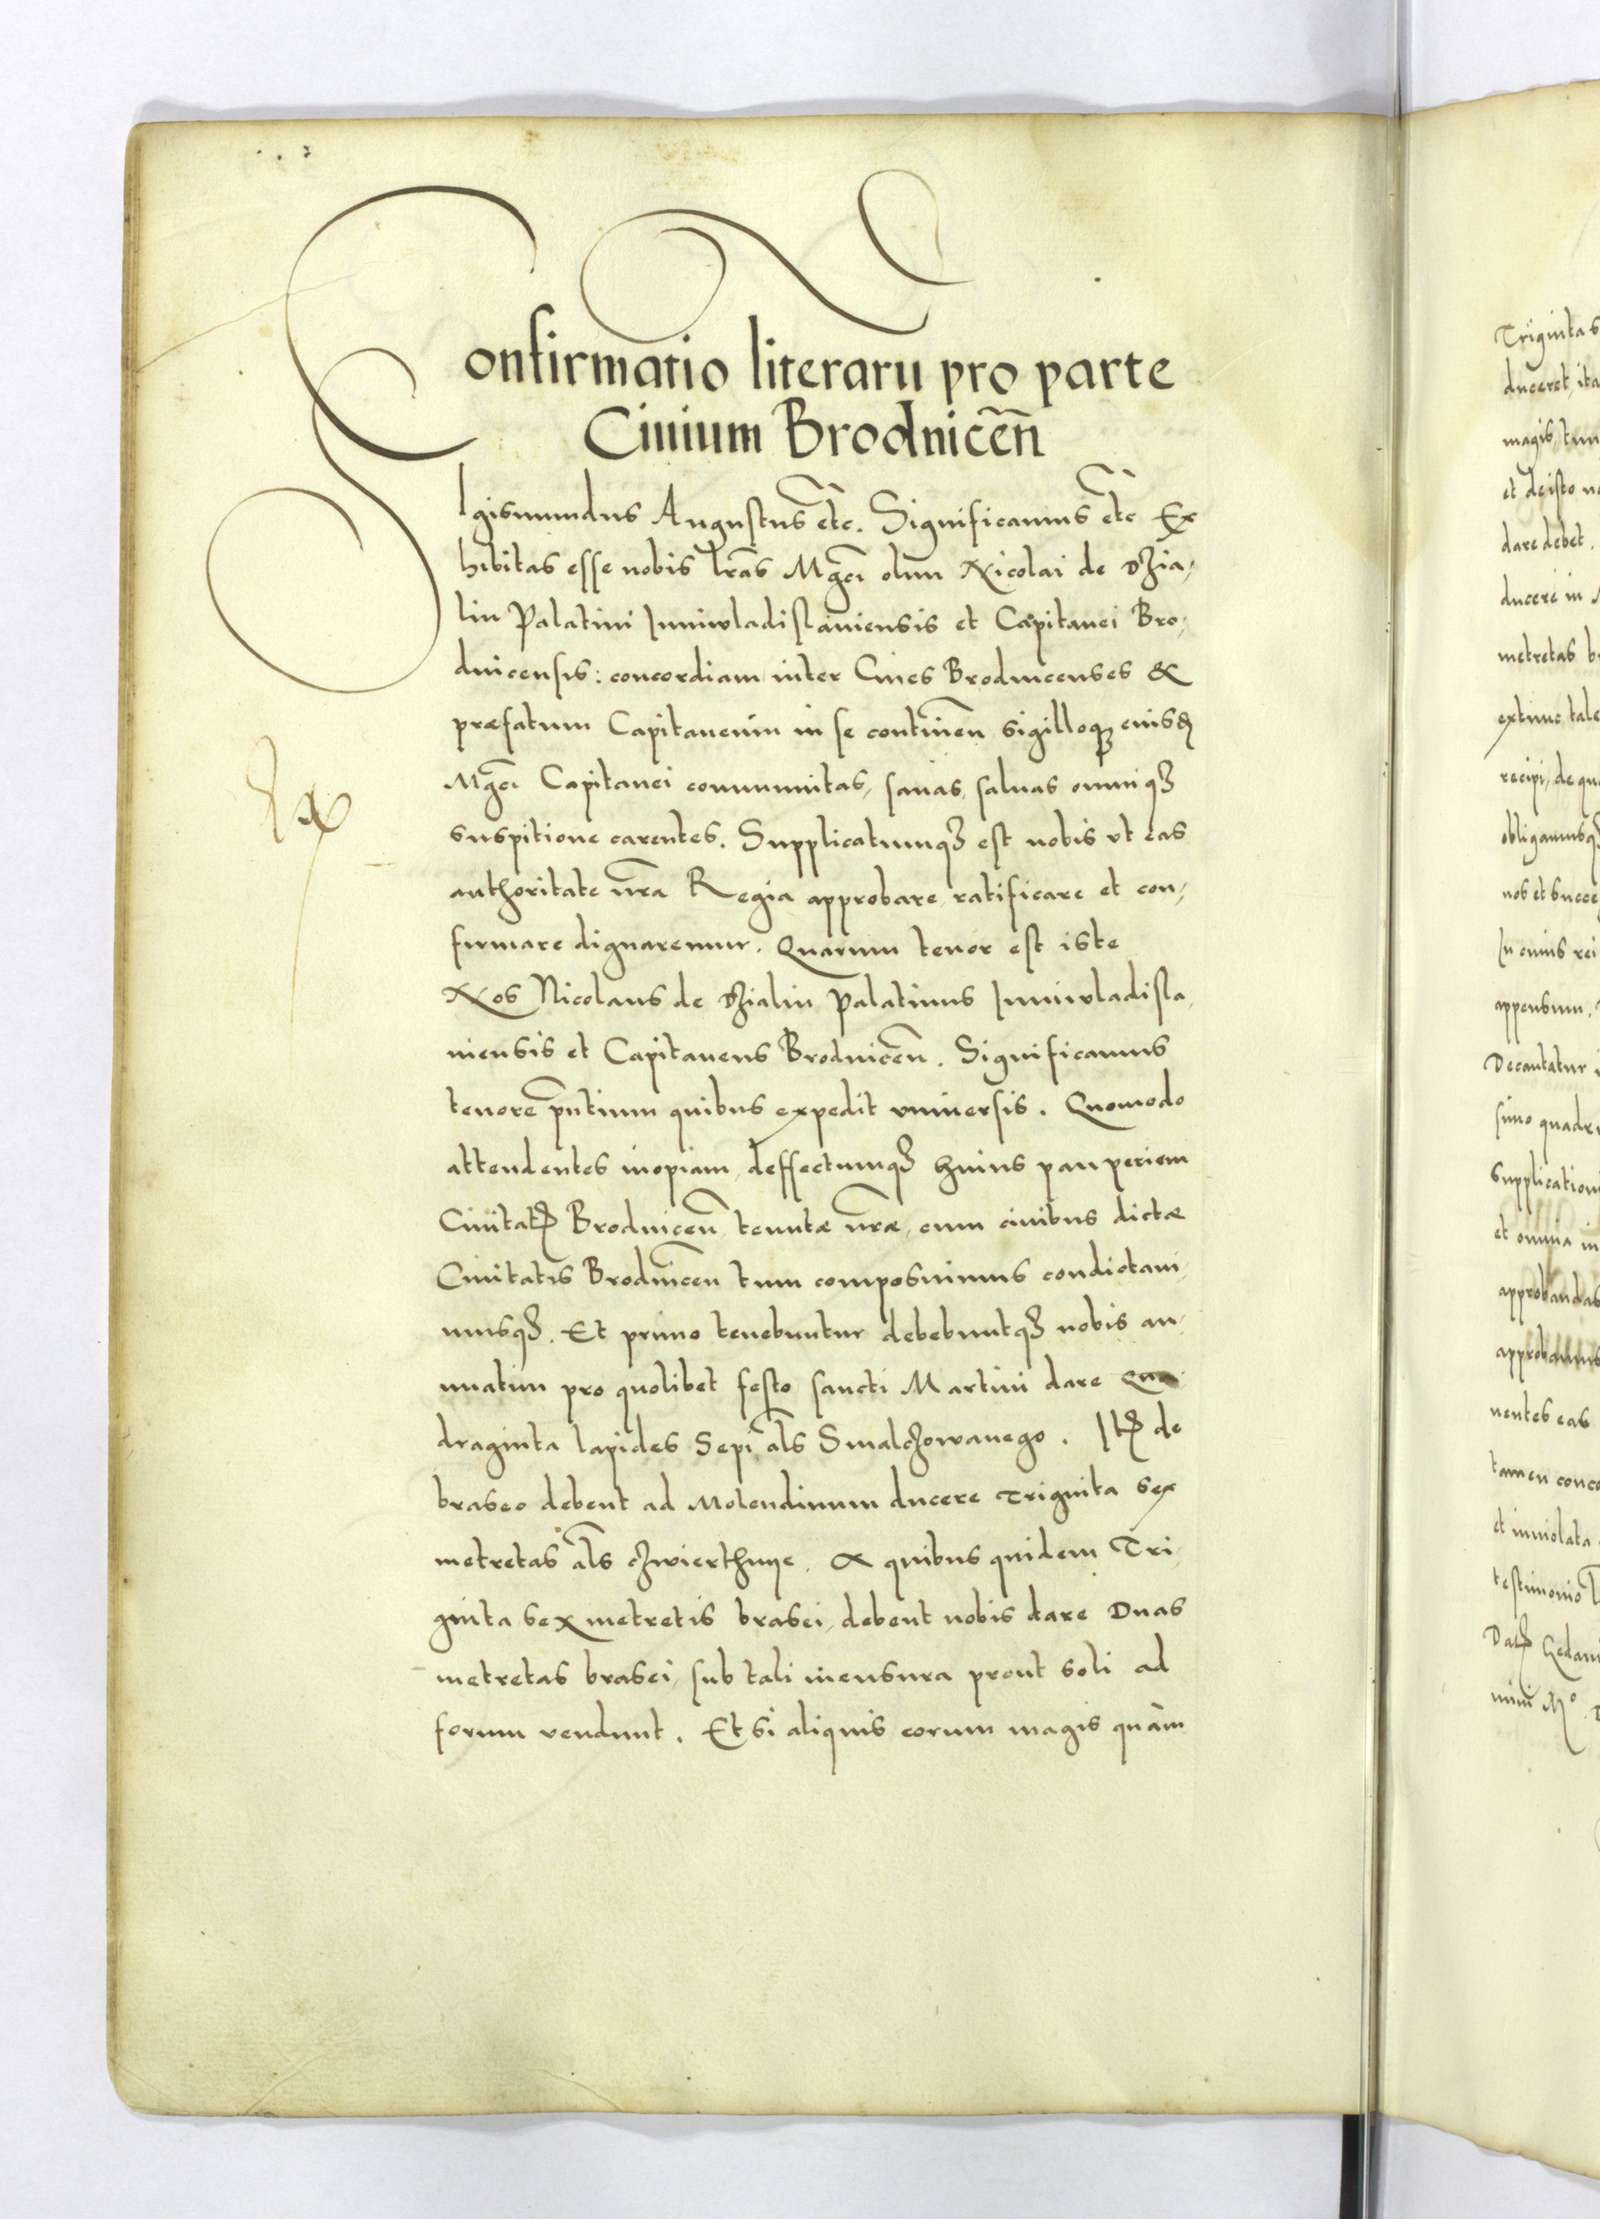 Confirmatio literarū pro parte
Ciuium Brodnicen̄
Sigismundus Augustus etc. Significamus etc Ex
hibitas esse nobis lrās Mgci olim Nicolai de Dzia,
lin Palatini Iuniwladislauiensis et Capitanei Bro,
dnicensis: concordiam inter Ciues Brodnicenses &
præfatum Capitaneum in se continen̄ sigilloqz eiusd
Mgci Capitanei communitas, sanas, saluas omniqz
suspitione carentes. Supplicatumqz est nobis vt eas
authoritate nrā Regia approbare ratificare et con,
firmare dignaremur. Quarum tenor est iste
Nos Nicolaus de Dzialin Palatinus Iuniwladisla,
uiensis et Capitaneus Brodnicen̄. Significamus
tenore pn̄tium quibus expedit vniuersis. Quomodo
attendentes inopiam, deffectumqz huius pauperiem
Ciuitat Brodnicen̄ tenutæ nrǣ, cum ciuibus dictæ
Ciuitatis Brodnicen̄ tum composuimus condictaui,
musqz. Et primo tenebuntur debebuntqz nobis an,
nuatim pro quolibet festo sancti Martini dare Qua
draginta lapides Sepi als̄ Smalczowanego. It de
braseo debent ad Molendinum ducere Triginta sex
metretas als̄ czwierthnye. & quibus quidem Tri,
ginta sex metretis brasei, debent nobis dare Duas
metretas brasei, sub tali mensura prout soli ad
forum vendunt. Et si aliquis eorum magis quàm
Triginta s
duceret, ita
magis, tun
et de isto no
dare debet.
ducere in
metretas b
extunc tale
recipi, de qu
obligamusqz
nos et succe
In cuius rei
appensum.
Decantatur
simo quadr
Supplication
et omnia in
approbandas
approbamus
nentes eas
tamen conc
et inuiolata
testimonio
Dat Gedani
mini Mº. D